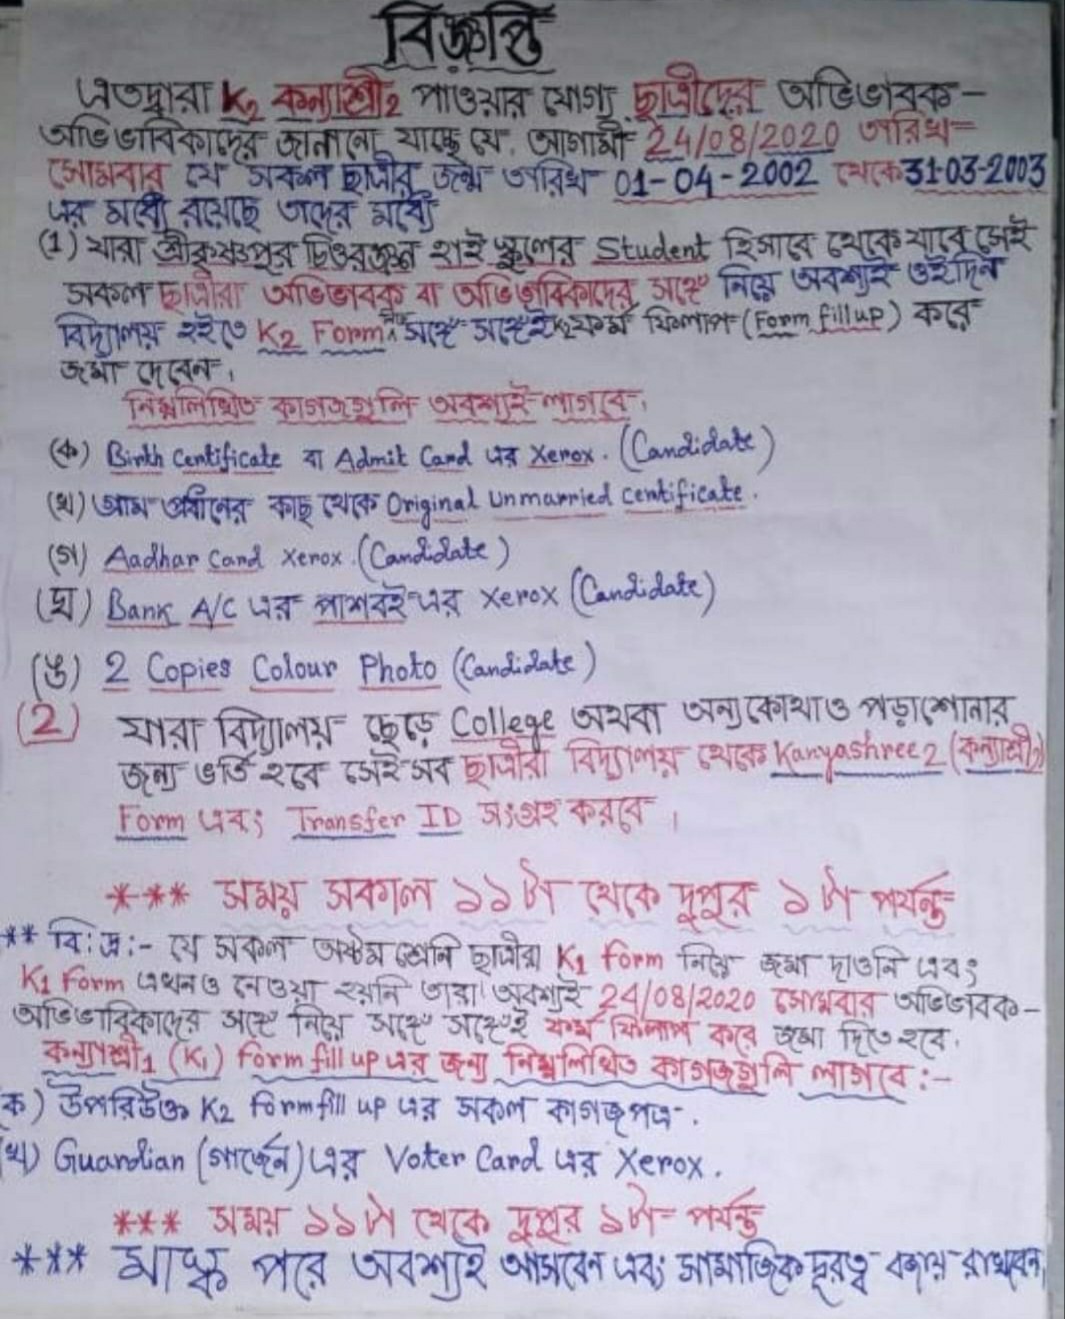 বিজ্ঞপ্তি
এতদ্বারা K₂ কন্যাশ্রী₂ পাওয়ার যোগ্য ছাত্রীদের অভিভাবক-
অভিভাবিকাদের জানানো যাচ্ছে যে, আগামী 24/08/2020 তারিখ
সোমবার যে সকল ছাত্রীর জন্ম তারিখ 01-04-2002 থেকে 31-03-2003
এর মধ্যে রয়েছে তাদের মধ্যে
(1) যারা শ্রীকৃষ্ণপুর চিত্তরঞ্জন হাই স্কুলের Student হিসাবে থেকে যাবে সেই
সকল ছাত্রীরা অভিভাবক বা অভিভাবিকাদের সঙ্গে নিয়ে অবশ্যই ওইদিন
বিদ্যালয় হইতে K2 Form সঙ্গে সঙ্গেই K₂ ফর্ম ফিলাপ (Form fill up) করে
জমা দেবেন।
নিম্নলিখিত কাগজগুলি অবশ্যই লাগবে।
(ক) Birth Certificate বা Admit Card এর Xerox. (Candidate)
(খ) গ্রাম প্রধানের কাছ থেকে Original Unmarried Certificate.
(গ) Aadhar Card Xerox. (Candidate)
(ঘ) Bank A/C এর পাশবই এর Xerox (Candidate)
(ঙ) 2 Copies Colour Photo (Candidate)
(2) যারা বিদ্যালয় ছেড়ে College অথবা অন্য কোথাও পড়াশোনার
জন্য ভর্তি হবে সেইসব ছাত্রীরা বিদ্যালয় থেকে Kanyashree2 (কন্যাশ্রী₂)
Form এবং Transfer ID সংগ্রহ করবে।
*** সময় সকাল ১১টা থেকে দুপুর ১টা পর্যন্ত
** বি:দ্র:- যে সকল অষ্টম শ্রেনি ছাত্রীরা K₁ form নিয়ে জমা দাওনি এবং
K1 Form এখনও নেওয়া হয়নি তারা অবশ্যই 24/08/2020 সোমবার অভিভাবক-
অভিভাবিকাদের সঙ্গে নিয়ে সঙ্গে সঙ্গেই ফর্ম ফিলাপ করে জমা দিতে হবে.
কন্যাশ্রী₁ (K₁) Form fill up এর জন্য নিম্নলিখিত কাগজগুলি লাগবে:-
ক) উপরিউক্ত K2 Form fill up এর সকল কাগজপত্র.
(খ) Guardian (গার্জেন) এর Voter Card এর Xerox.
*** সময় ১১টা থেকে দুপুর ১টা পর্যন্ত
*** মাস্ক পরে অবশ্যই আসবেন এবং সামাজিক দূরত্ব বজায় রাখবেন।